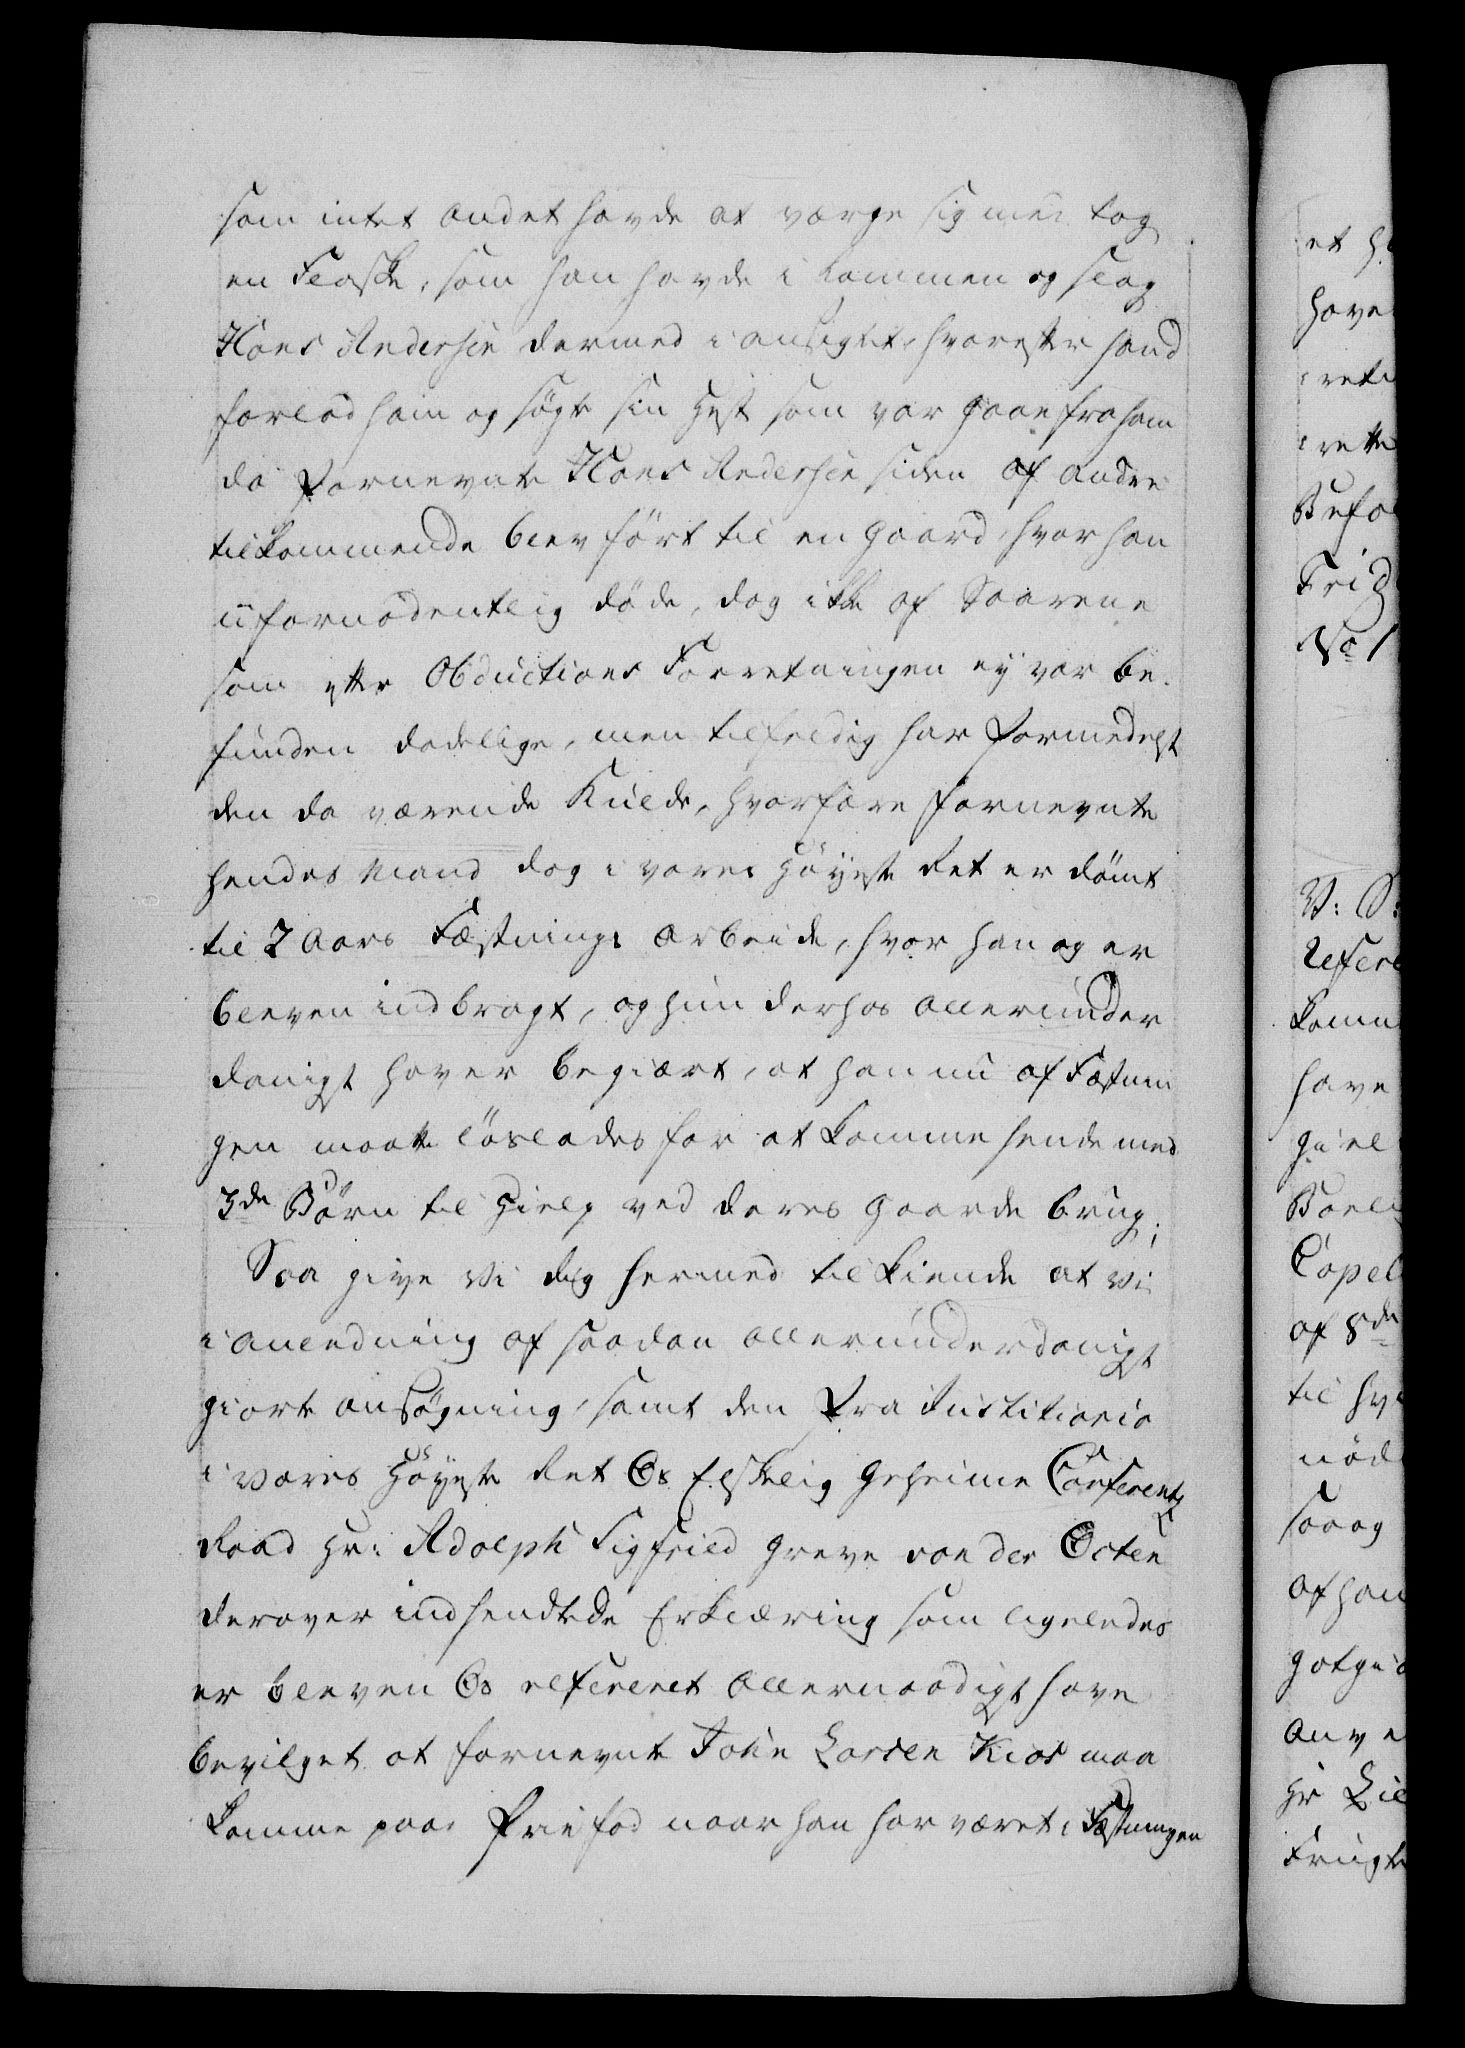 som intet andet havde at værge sig med tog
en Flaske, som han havde i Lommen og slog
Hans Andersen dermed i ansigtet, hvorefter hand
forlod ham og søgte sin Hest som var gaaen fra ham
da fornevnte Hans Andersen siden af andre
tilkommende blev ført til en Gaard, hvor han
uformodentlig døde, dog ikke af Saarene
som efter Obductions Forretningen ey var be-
funden dødelige, men tilfeldig har formedelst
den da værende Kulde, hvorfore fornevnte
hendes Mand dog i vores Høyeste Ret er dømt
til 2 Aars Fæstnings Arbeide, hvor han og er
bleven indbragt, og hun derhos allerunder
danigst haver begiært, at han nu af Fæstnin
gen maatte løslades for at komme hende med
3de Børn til Hielp ved deres Gaards brug;
Saa give Vi dig hermed tilkiende at Vi
i anledning af saadan allerunderdanigst
giorte ansøgning, samt den Præ Justitiario
i Vores Høyeste Ret Os Elskelig Geheime Conferentz
Raad Hr: Adolph Sigfried Greve von der Osten
derover indsendtede Erklæring som ligeledes
er bleven Os refereret allernaadigst have
bevilget at fornevnte John Larsen Kior maa
komme paa frie fod naar han har været i Fæstningen
et h
have
rett
rette
Befa
Frid
No 1
V: S:
Refere
komm
have
giel
Boeli
Capel
af 8de
til hv
nød
saa og
af han
gotgiø
anve
Hr Lil
Frugt